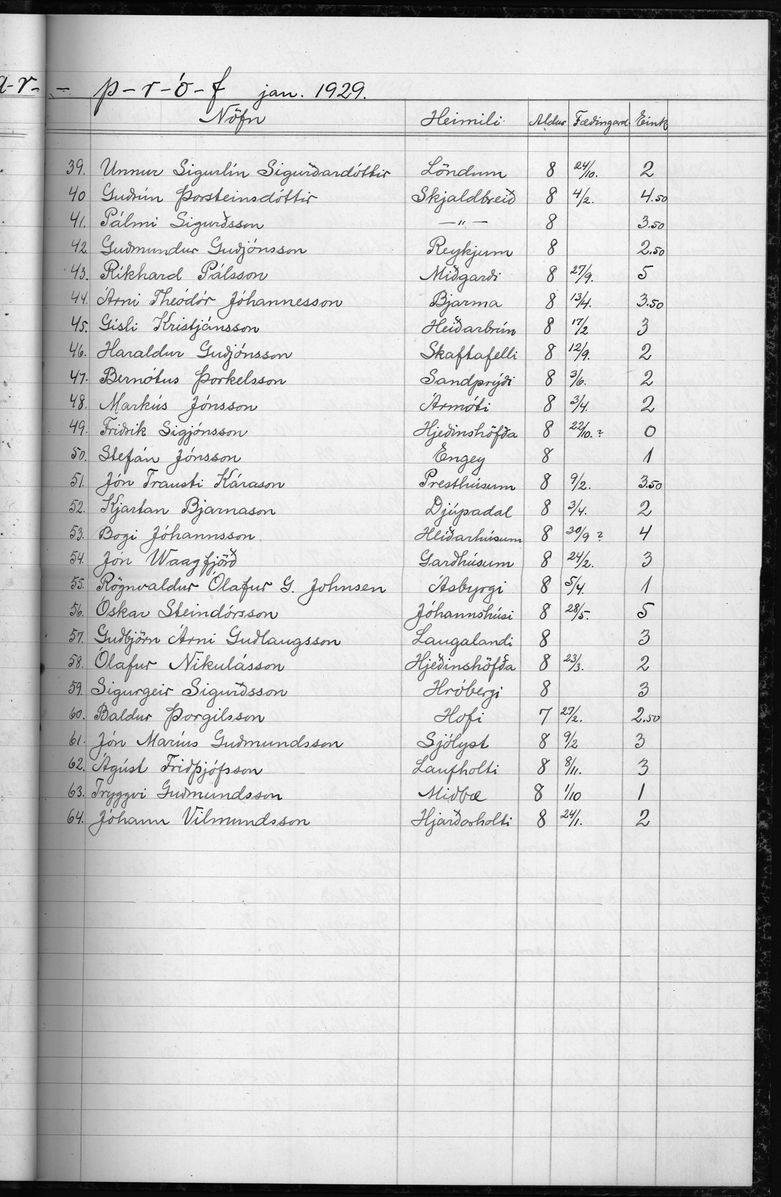 a-r- - p-r-ó-f jan. 1929.
Nöfn Heimili Aldur Fædingard Eink
39. Unnur Sigurlín Sigurðardóttir Löndum 8 24/10. 2
40 Guðrún Þorsteinsdóttir Skjaldbreið 8 4/2. 4.50
41. Pálmi Sigurðsson —„— 8 3.50
42. Guðmundur Guðjónsson Reykjum 8 2.50
43. Ríkhard Pálsson Miðgarði 8 27/9. 5
44. Árni Theódór Jóhannesson Bjarma 8 13/4. 3.50
45. Gísli Kristjánsson Heiðarbrún 8 17/2 3
46. Haraldur Guðjónsson Skaftafelli 8 12/9. 2
47. Bernótus Þorkelsson Sandprýði 8 3/6. 2
48. Markús Jónsson Ármóti 8 3/4. 2
49. Friðrik Sigjónsson Hjeðinshöfða 8 22/10.? 0
50. Stefán Jónsson Engey 8 1
51. Jón Trausti Kárason Presthúsum 8 9/2. 3.50
52. Kjartan Bjarnason Djúpadal 8 3/4. 2
53. Bogi Jóhannsson Heiðarhúsum 8 30/9 ? 4
54. Jón Waagfjörð Garðhúsum 8 24/2. 3
55. Rögnvaldur Ólafur G. Johnsen Ásbyrgi 8 5/4. 1
56. Óskar Steindórsson Jóhannshúsi 8 28/5. 5
57. Guðbjörn Árni Guðlaugsson Laugalandi 8 3
58. Ólafur Nikulásson Hjeðinshöfða 8 23/3. 2
59. Sigurgeir Sigurðsson Hróbergi 8 3
60. Baldur Þorgilsson Hofi 7 27/2. 2.50
61. Jón Maríus Guðmundsson Sjólyst 8 9/2 3
62. Ágúst Friðþjófsson Laufholti 8 8/11. 3
63. Tryggvi Guðmundsson Miðbæ 8 1/10 1
64. Jóhann Vilmundsson Hjarðarholti 8 24/1. 2